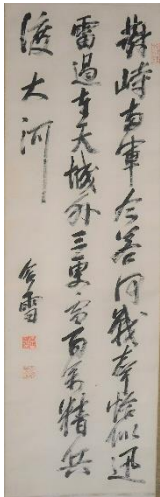 對峙両軍今若何戰聲恰似迅
雷過奉天城外三更雪百萬精兵
渡大河
含雪